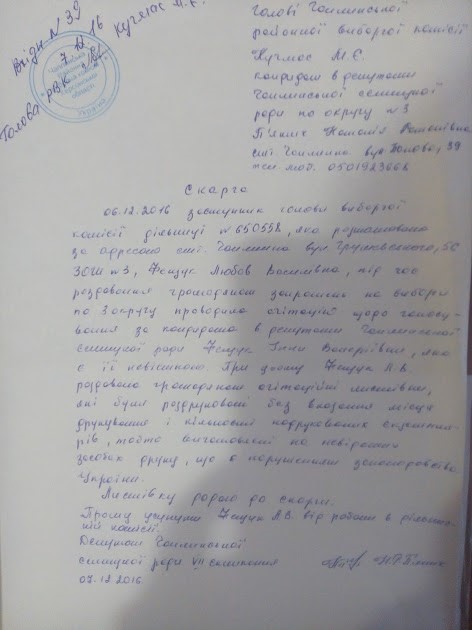 Вхідн N 39
7.12.16 Кучмас М.Є.
Голова РВК
Україна
Голові Гощинської
районної виборчої комісії
Кучмас М.Є.
кандидат в депутати
селищної
ради по округу №3
П'янких Наталія Романівна
смт. вул. 39
моб. 0501923668
Скарга
06.12.2016 заступник голови виборчої
комісії дільниці №650558, яка розташована
за адресою смт. вул. Грушевського, 50
ЗОШ №3, Ящук Любов Василівна, під час
роздавання громадянам запрошень на вибори
по 3 округу проводила агітацію щодо голосу-
вання за кандидата в депутати
селищної ради Ящук Інни Валеріївни, яка
є її невісткою. При цьому Ящук Л.В.
роздавала громадянам агітаційні листівки,
які були роздруковані без вказання місця
друкування і кількості надрукованих екземпля-
рів, тобто виготовлені на невідомих
засобах друку, що є порушенням законодавства
України.
Листівку додаю до скарги.
Прошу усунути Ящук Л.В. від роботи в дільнич-
ній комісії.
Депутат
селищної ради VII скликання
07.12.2016